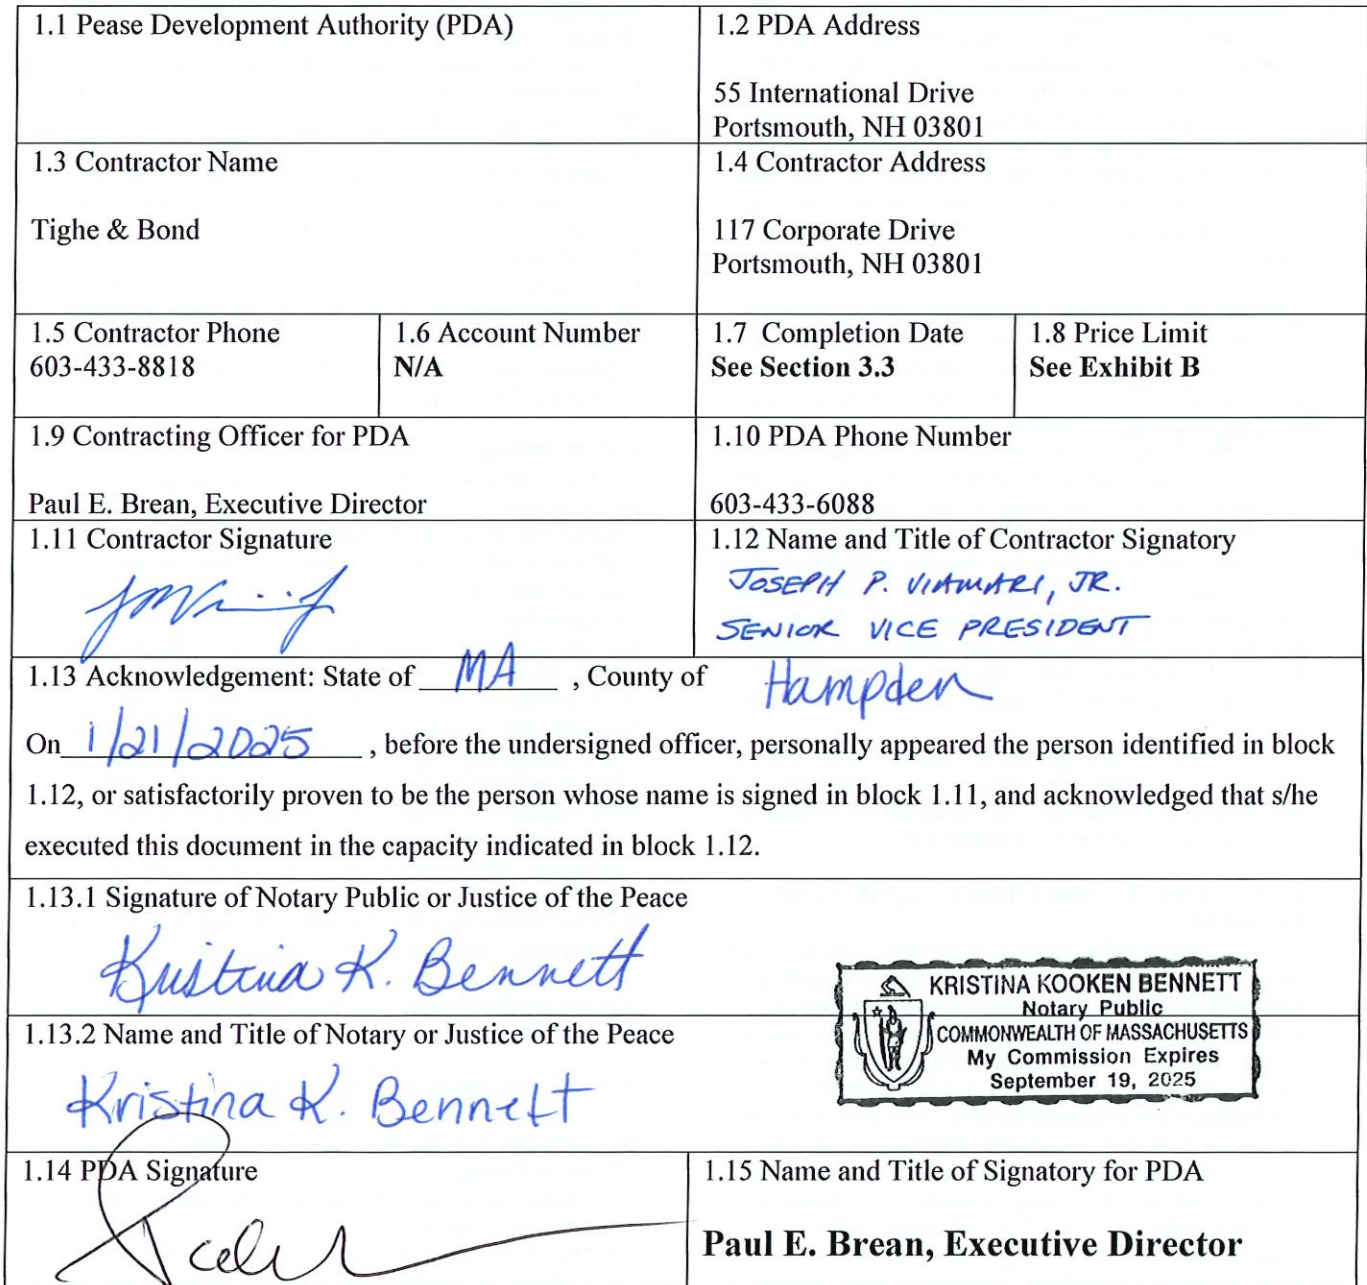 1.1 Pease Development Authority (PDA)
1.2 PDA Address
55 International Drive
Portsmouth, NH 03801
1.3 Contractor Name
Tighe & Bond
1.4 Contractor Address
117 Corporate Drive
Portsmouth, NH 03801
1.5 Contractor Phone
603-433-8818
1.6 Account Number
N/A
1.7 Completion Date
See Section 3.3
1.8 Price Limit
See Exhibit B
1.9 Contracting Officer for PDA
Paul E. Brean, Executive Director
1.10 PDA Phone Number
603-433-6088
1.11 Contractor Signature
1.12 Name and Title of Contractor Signatory
JOSEPH P. VIAMARI, JR.
SENIOR VICE PRESIDENT
1.13 Acknowledgement: State of MA , County of Hampden
On 1/21/2025 , before the undersigned officer, personally appeared the person identified in block
1.12, or satisfactorily proven to be the person whose name is signed in block 1.11, and acknowledged that s/he
executed this document in the capacity indicated in block 1.12.
1.13.1 Signature of Notary Public or Justice of the Peace
Kristina K. Bennett
KRISTINA KOOKEN BENNETT
Notary Public
COMMONWEALTH OF MASSACHUSETTS
My Commission Expires
September 19, 2025
1.13.2 Name and Title of Notary or Justice of the Peace
Kristina K. Bennett
1.14 PDA Signature
1.15 Name and Title of Signatory for PDA
Paul E. Brean, Executive Director